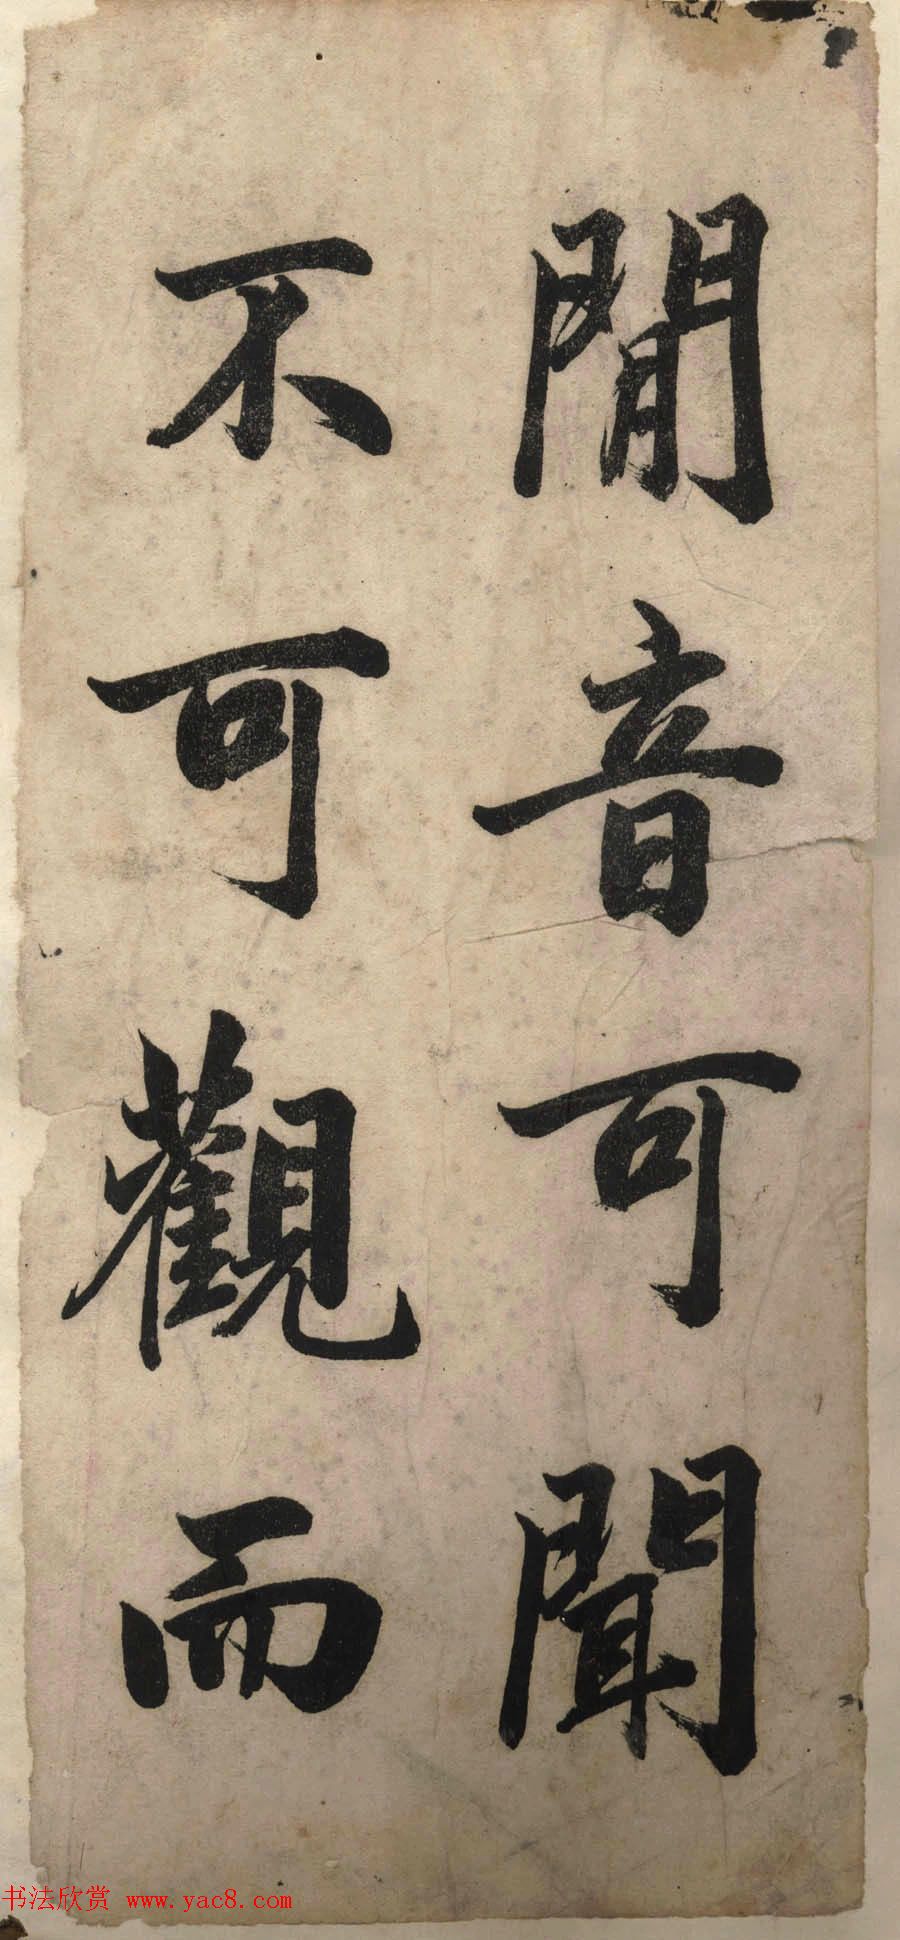 閒音可聞
不可觀而
书法欣赏 www.yac8.com